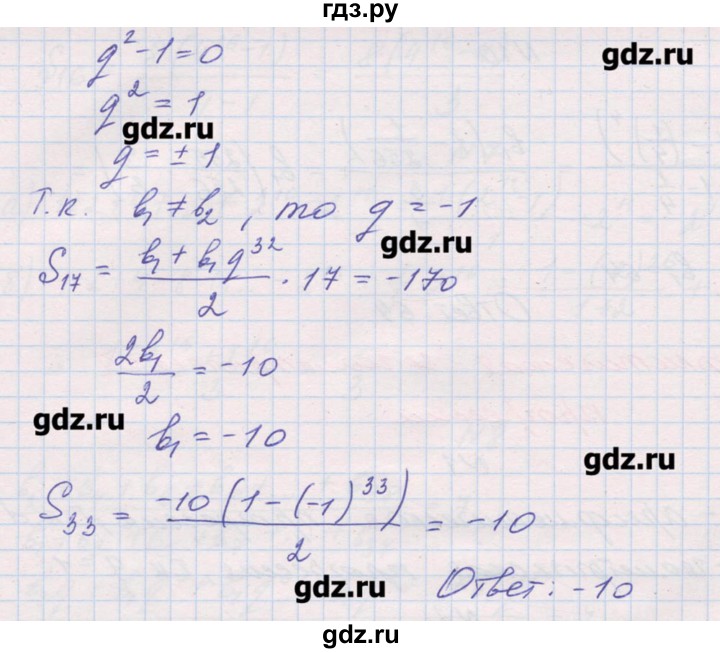 гдз.ру
g² - 1 = 0
gdz.ru
g² = 1
gdz.ru
g = ± 1
Т.к. b₁ ≠ b₂, то g = -1
gdz.ru
S₁₇ = (b₁ + b₁g³²)/2 · 17 = -170
2b₁/2 = -10
gdz.ru
b₁ = -10
gdz.ru
S₃₃ = -10(1-(-1)³³)/2 = -10
gdz.ru
Ответ: -10
gdz.ru